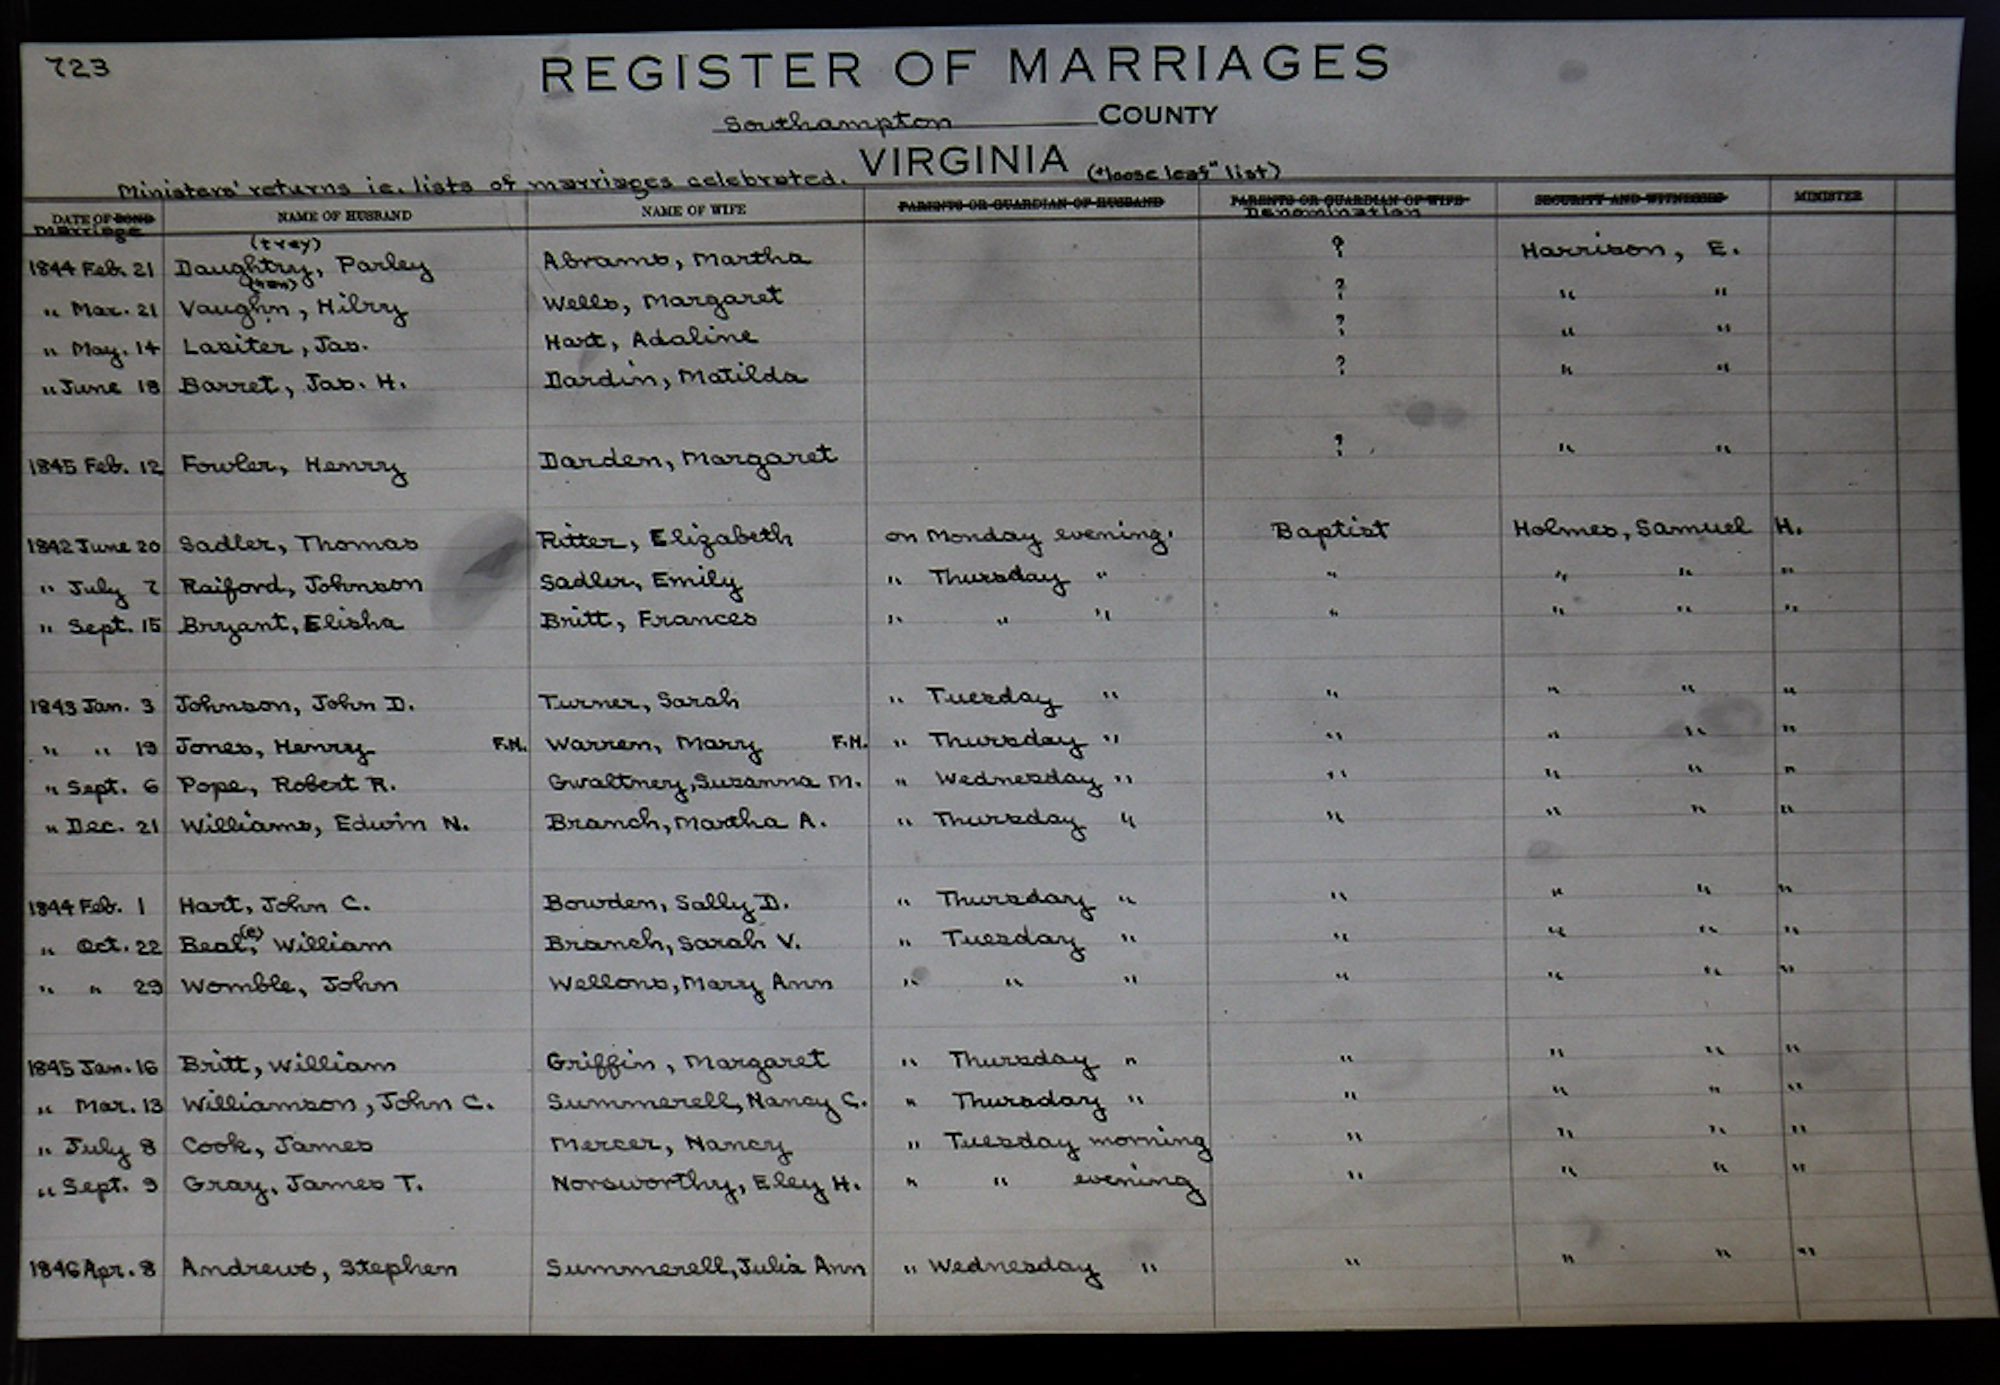 723
REGISTER OF MARRIAGES
Southampton COUNTY
VIRGINIA ("loose leaf" list)
Ministers' returns ie. lists of marriages celebrated.
DATE OF BOND NAME OF HUSBAND NAME OF WIFE PARENTS OR GUARDIAN OF HUSBAND PARENTS OR GUARDIAN OF WIFE SECURITY AND WITNESSES MINISTER
Marriage Denomination
(trey)
1844 Feb. 21 Daughtry, Parley Abrams, Martha ? Harrison, E.
(han)
" Mar. 21 Vaughn, Hilry Wells, Margaret ? " "
" May. 14 Lasiter, Jas. Hart, Adaline ? " "
" June 18 Barret, Jas. H. Dardin, Matilda ? " "
1845 Feb. 12 Fowler, Henry Darden, Margaret ? " "
1842 June 20 Sadler, Thomas Ritter, Elizabeth on Monday evening. Baptist Holmes, Samuel H.
" July 7 Raiford, Johnson Sadler, Emily " Thursday " " " " "
" Sept. 15 Bryant, Elisha Britt, Frances " " " " " " "
1843 Jan. 3 Johnson, John D. Turner, Sarah " Tuesday " " " " "
" " 19 Jones, Henry F.N. Warren, Mary F.N. " Thursday " " " " "
" Sept. 6 Pope, Robert R. Gwaltney, Susanna M. " Wednesday " " " " "
" Dec. 21 Williams, Edwin N. Branch, Martha A. " Thursday " " " " "
1844 Feb. 1 Hart, John C. Bowden, Sally D. " Thursday " " " " "
" Oct. 22 Beal(e), William Branch, Sarah V. " Tuesday " " " " "
" " 29 Womble, John Wellons, Mary Ann " " " " " " "
1845 Jan. 16 Britt, William Griffin, Margaret " Thursday " " " " "
" Mar. 13 Williamson, John C. Summerell, Nancy C. " Thursday " " " " "
" July 8 Cook, James Mercer, Nancy " Tuesday morning " " " "
" Sept. 9 Gray, James T. Norsworthy, Eley H. " " evening " " " "
1846 Apr. 8 Andrews, Stephen Summerell, Julia Ann " Wednesday " " " " "